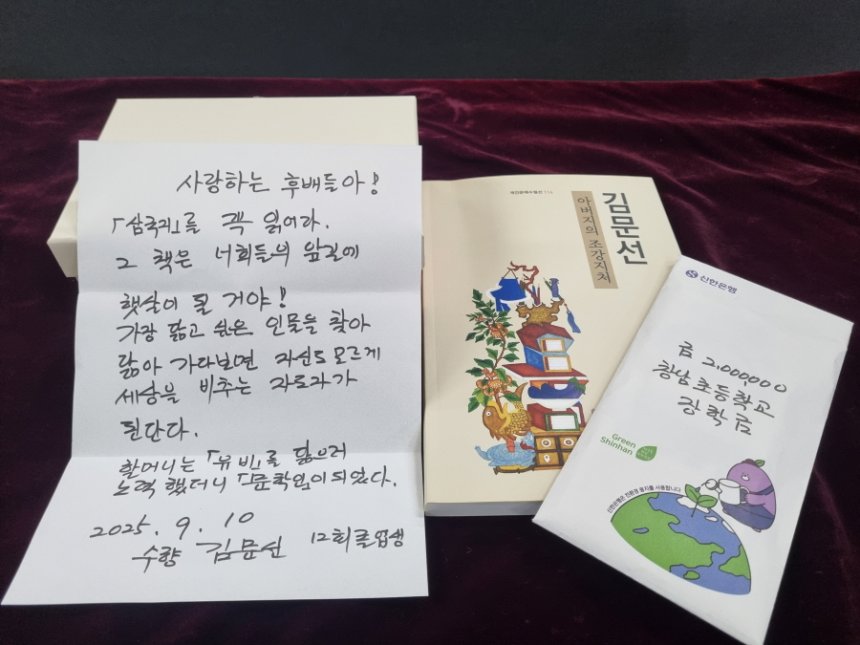 사랑하는 후배들아!
「삼국지」를 꼭 읽어라.
그 책은 너희들의 앞길에
햇살이 될 거야!
가장 닮고 싶은 인물을 찾아
닮아 가다보면 자신도 모르게
세상을 비추는 지도자가
된단다.
할머니는 「유비」를 닮으려
노력 했더니 「문학인」이 되었다.
2025. 9. 10
수향 김문선 12회졸업생
김문선
아버지의 조강지처
신한은행
금 2,000,000
창남초등학교
장학금
Green
Shinhan
신한은행은 친환경 봉투를 사용합니다.